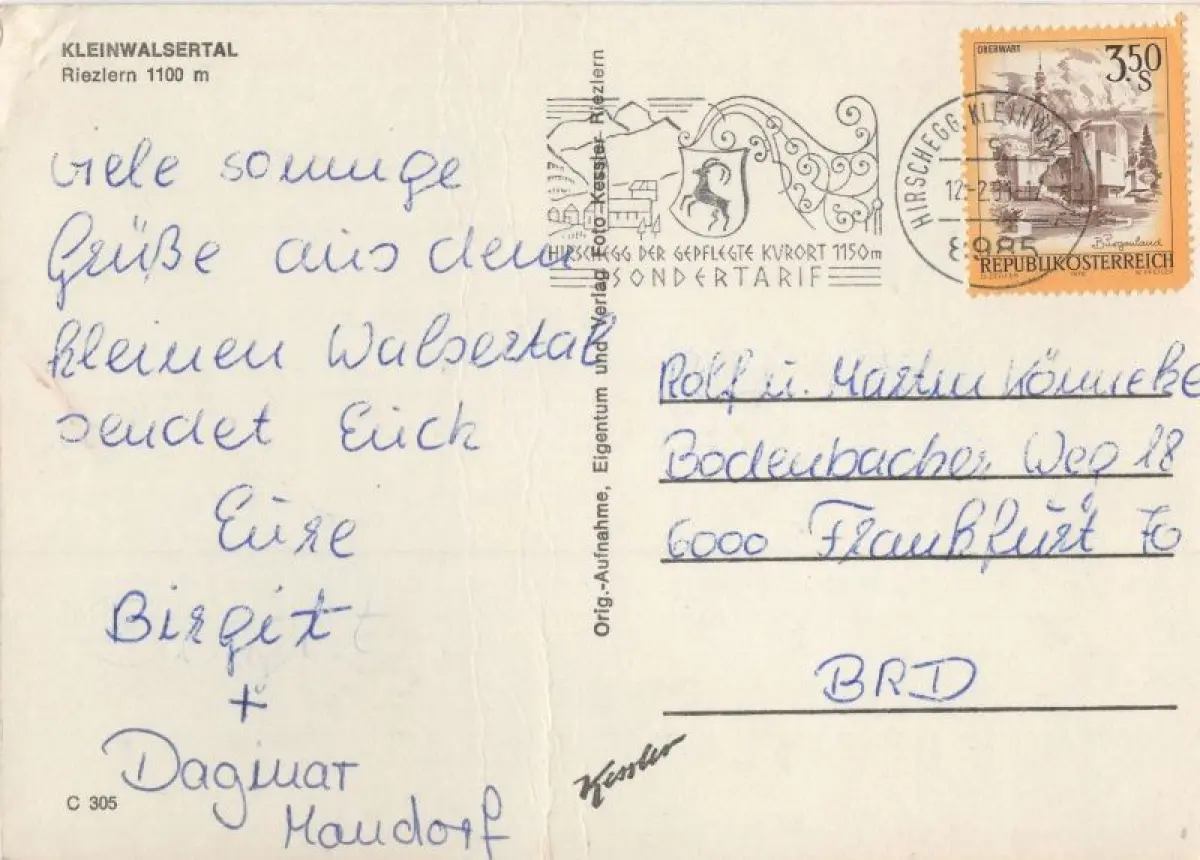 KLEINWALSERTAL
Riezlern 1100 m
viele sonnige
Grüße aus dem
kleinen Walsertal
sendet Euch
Eure
Birgit
+
Dagmar
Mandorf
C 305
Orig.-Aufnahme, Eigentum und Verlag Foto Kessler Riezlern
HIRSCHEGG DER GEPFLEGTE KURORT 1150m
SONDERTARIF
HIRSCHEGG, KLEINWA
8985
OBERWART
3.50
S
Burgenland
REPUBLIK ÖSTERREICH
Rolf u. Martin Könneke
Bodenbacher Weg 18
6000 Frankfurt 70
BRD
Kessler